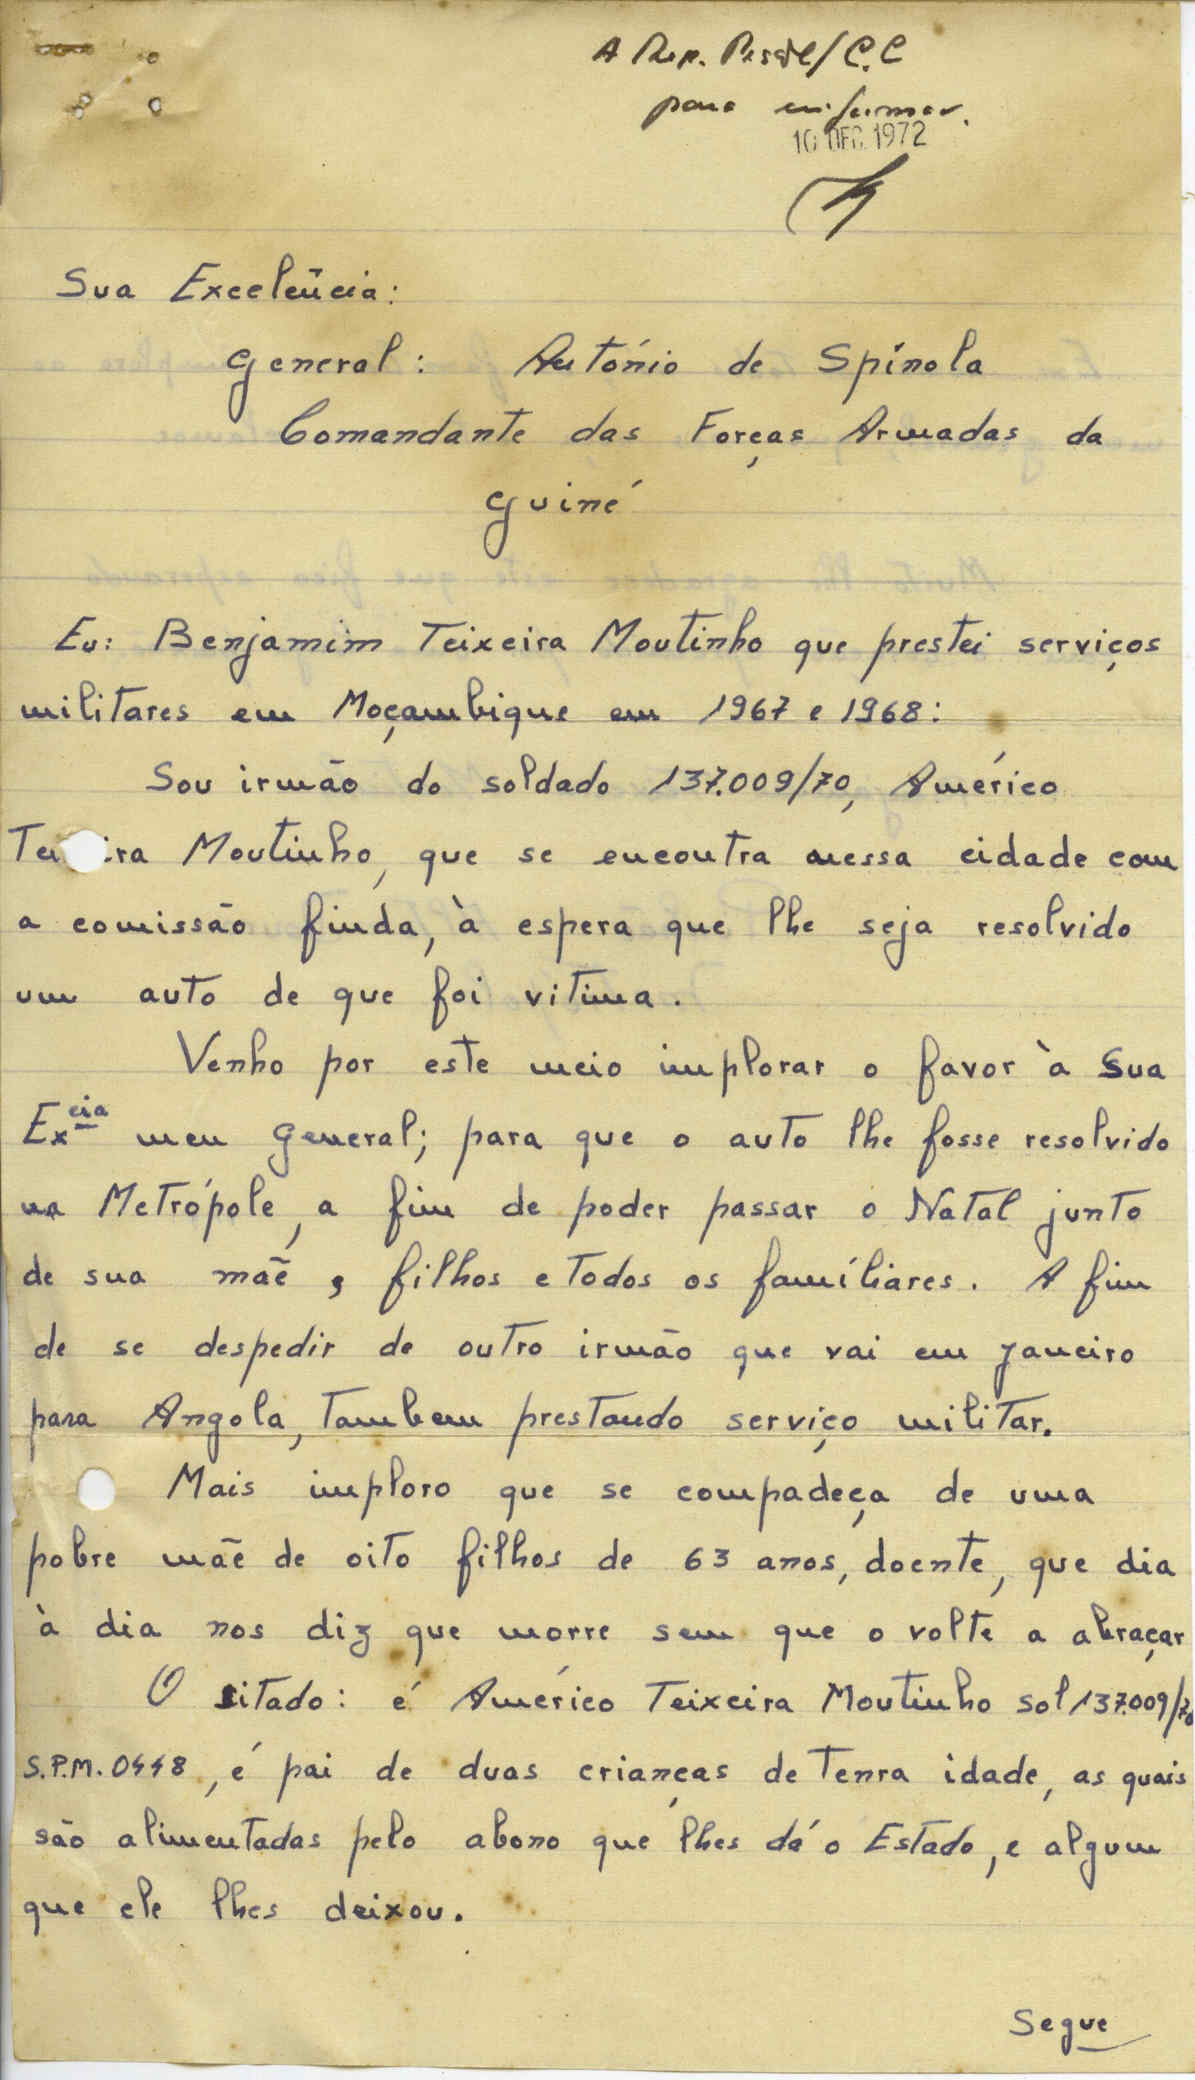 A Rep. Pessoal/C.C
para informar.
10 DEC. 1972
Sua Excelência:
General: António de Spínola
Comandante das Forças Armadas da
Guiné
Eu: Benjamim Teixeira Moutinho que prestei serviços
militares em Moçambique em 1967 e 1968:
Sou irmão do soldado 137.009/70, Américo
Te ira Moutinho, que se encontra nessa cidade com
a comissão finda, à espera que lhe seja resolvido
um auto de que foi vitima.
Venho por este meio implorar o favor à Sua
Ex cia meu General; para que o auto lhe fosse resolvido
na Metrópole, a fim de poder passar o Natal junto
de sua maẽ, filhos e todos os famíliares. A fim
de se despedir de outro irmão que vai em Janeiro
para Angola, tambem prestando serviço militar.
Mais imploro que se compadeça de uma
pobre mãe de oito filhos de 63 anos, doente, que dia
à dia nos diz que morre sem que o volte a abraçar
O sitado: é Américo Teixeira Moutinho sol 137.009/70
S.P.M. 0448, é pai de duas crianças de tenra idade, as quais
são alimentadas pelo abono que lhes dá o Estado, e algum
que ele lhes deixou.
Segue